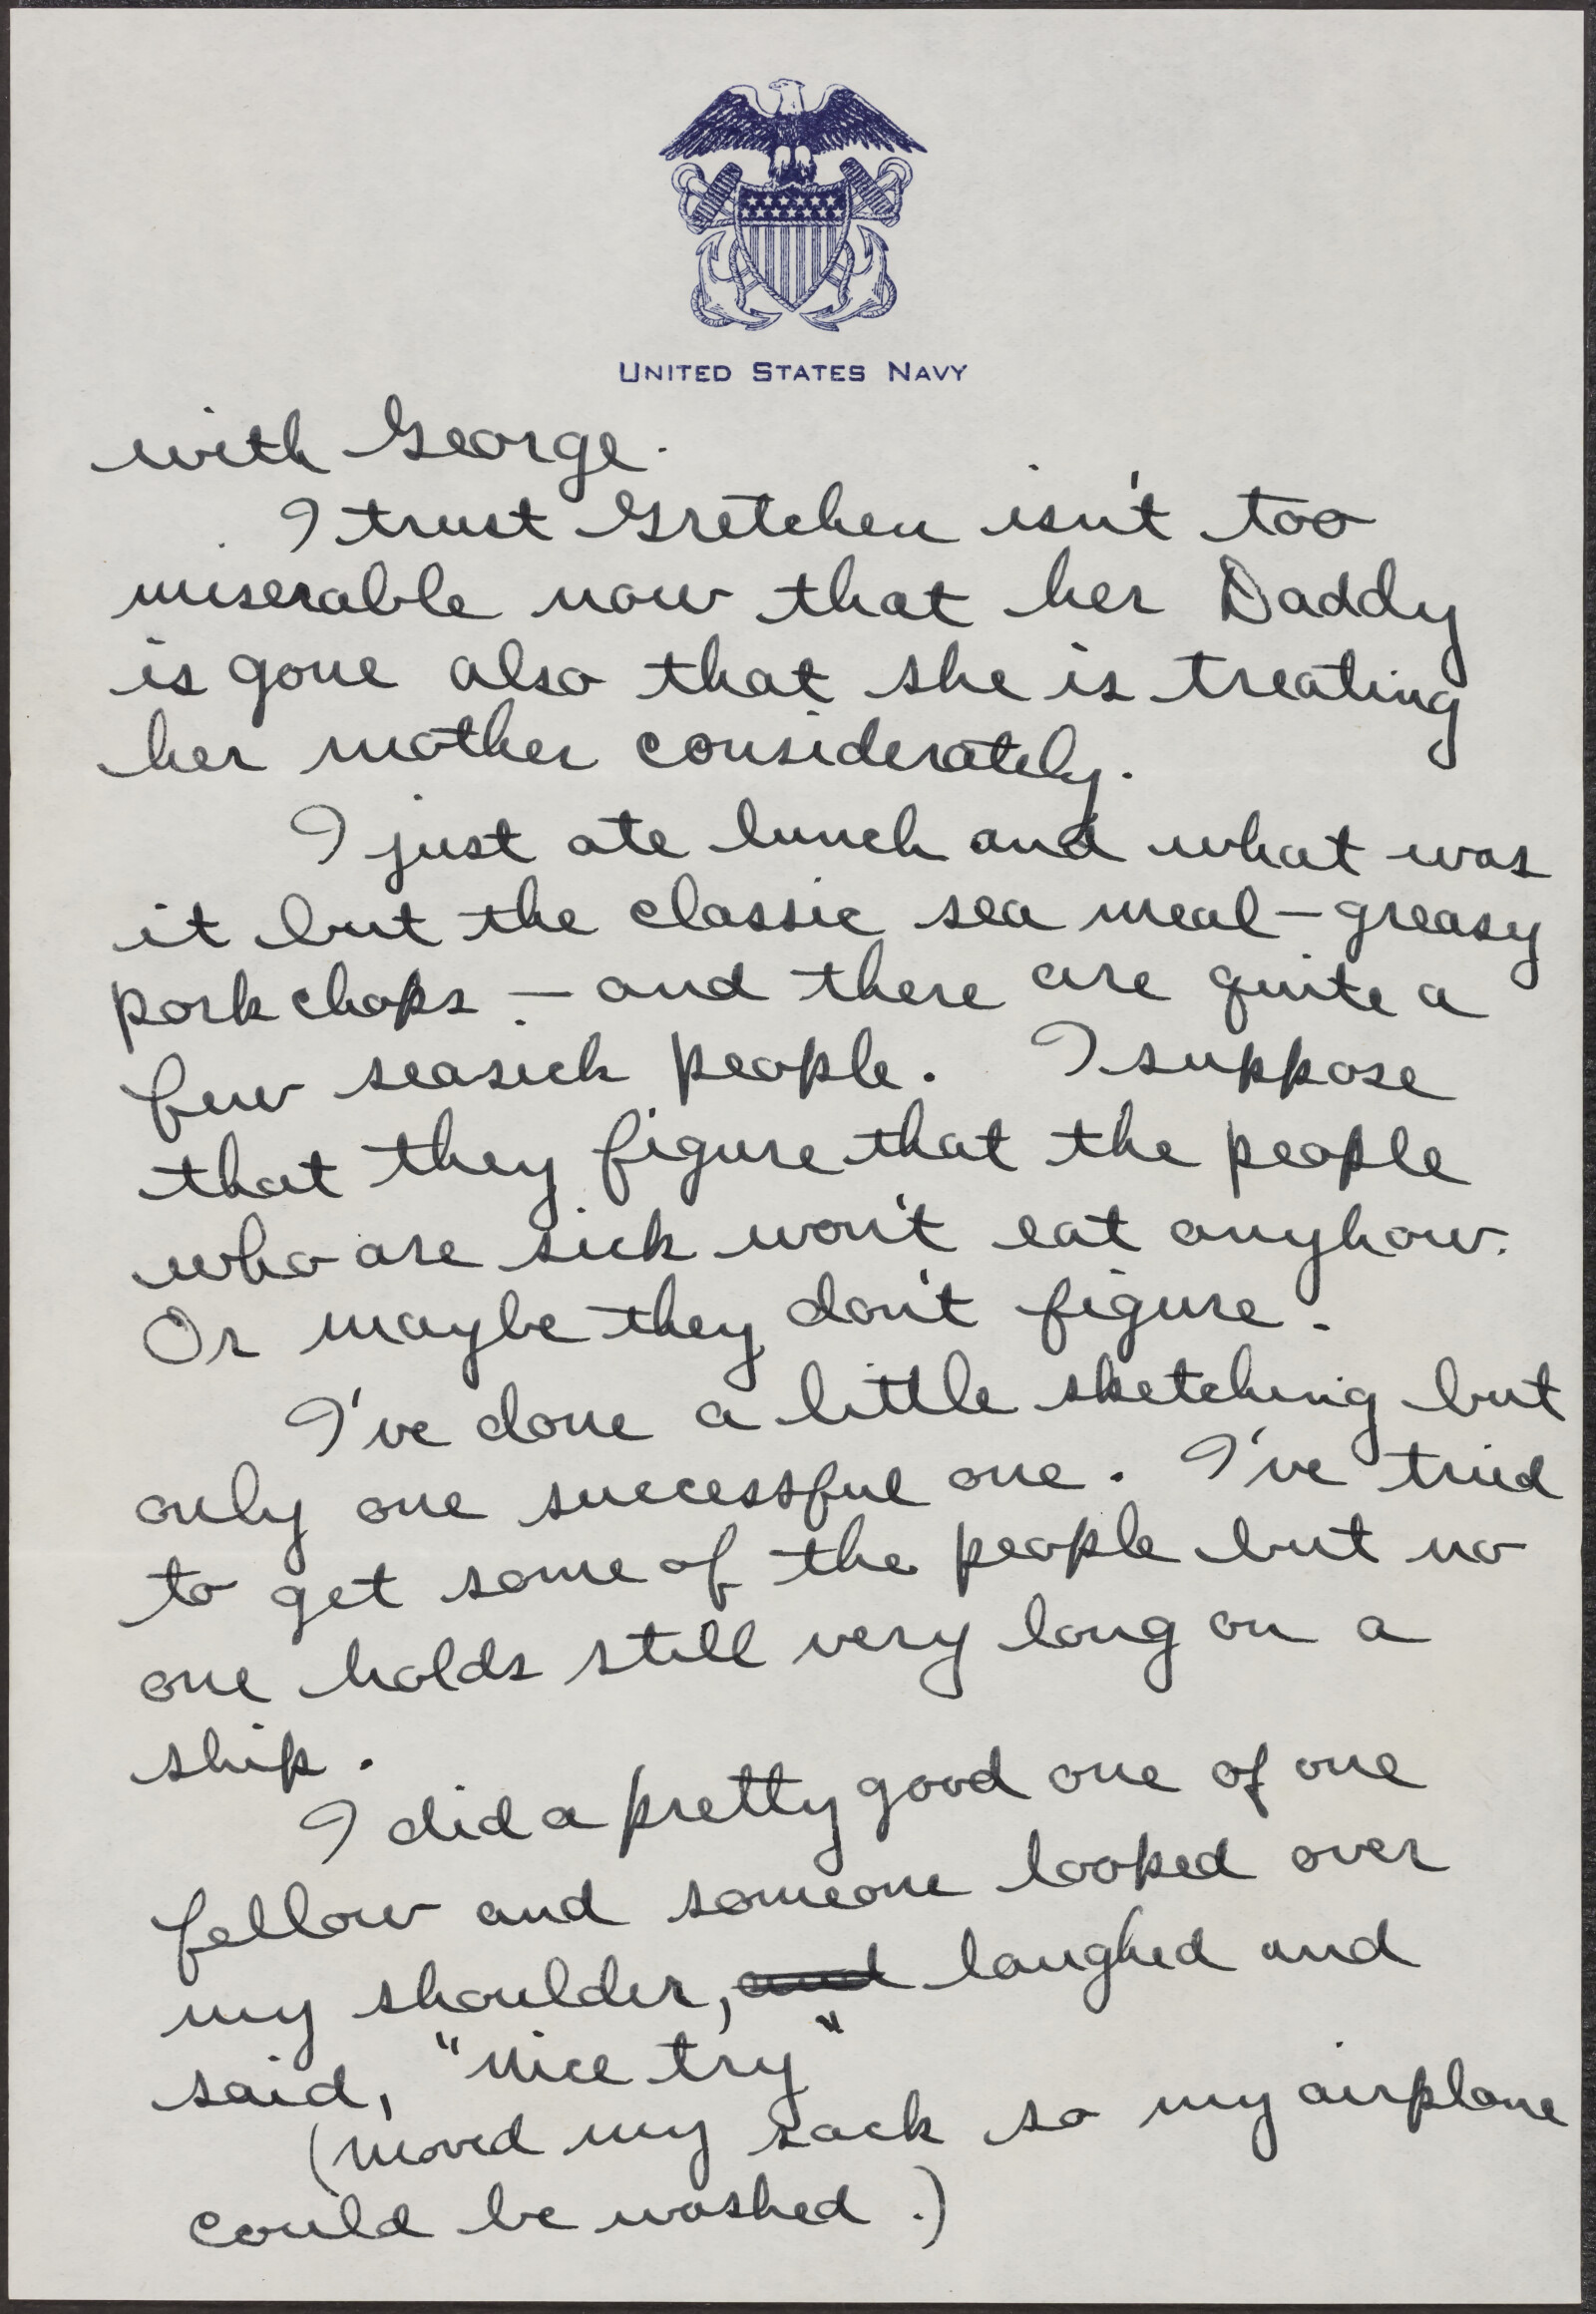 UNITED STATES NAVY
with George.
I trust Gretchen isn't too
miserable now that her Daddy
is gone also that she is treating
her mother considerately.
I just ate lunch and what was
it but the classic sea meal – greasy
pork chops – and there are quite a
few seasick people. I suppose
that they figure that the people
who are sick won't eat anyhow.
Or maybe they don't figure.
I've done a little sketching but
only one successful one. I've tried
to get some of the people but no
one holds still very long on a
ship.
I did a pretty good one of one
fellow and someone looked over
my shoulder, and laughed and
said, "nice try"
(moved my sack so my airplane
could be washed.)